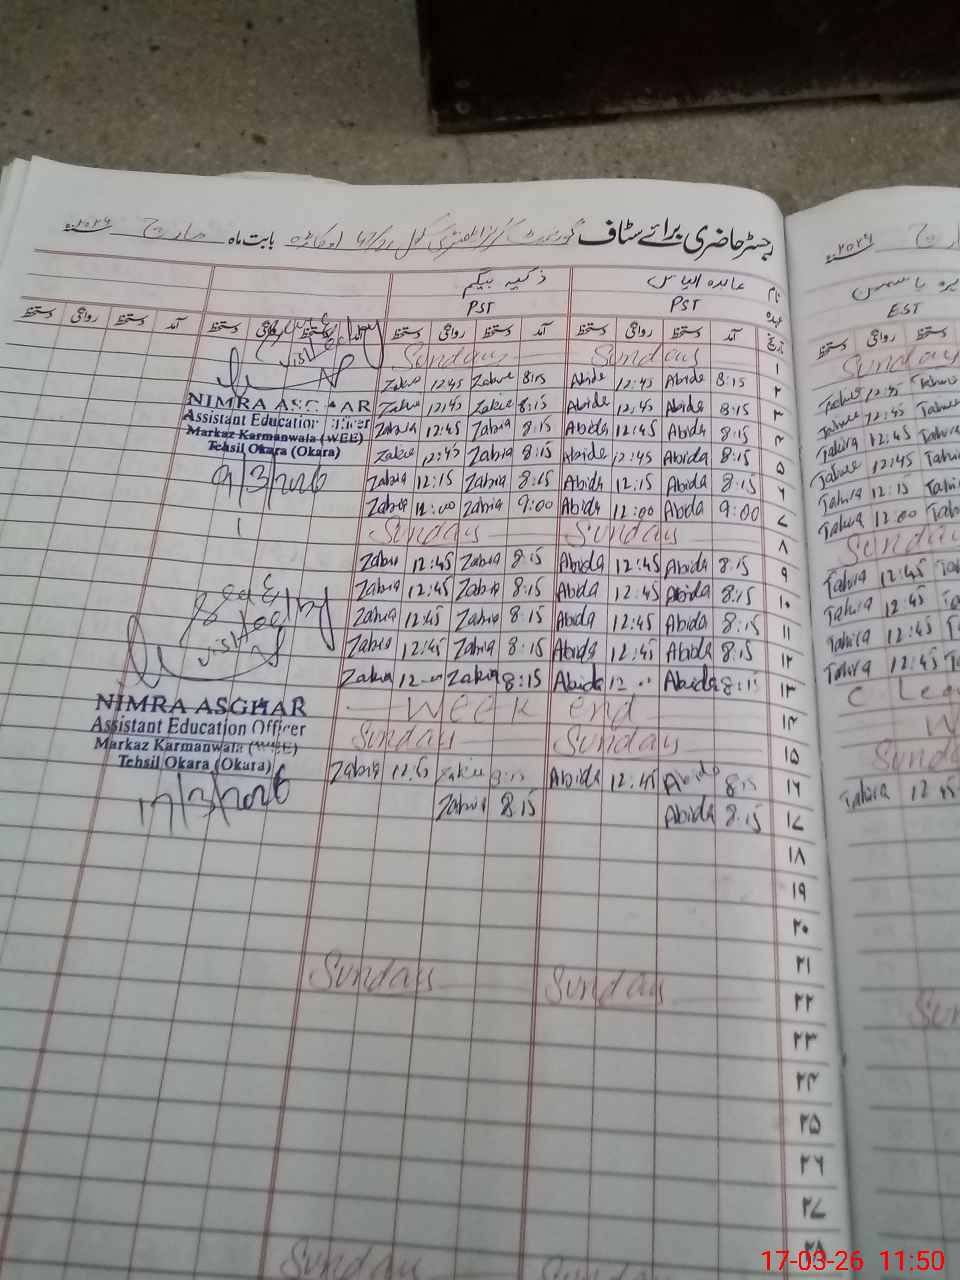 رجسٹر حاضری برائے سٹاف گورنمنٹ گرلز ایلیمنٹری سکول 47/2R اوکاڑہ بابت ماہ مارچ ۲۰۲۶ء
نام عابدہ الیاس ذکیہ بیگم
عہدہ PST PST
تاریخ آمد دستخط روانگی دستخط آمد دستخط روانگی دستخط آمد دستخط روانگی دستخط آمد دستخط روانگی دستخط
۱ Sunday Sunday
۲ 8:15 Abida 12:45 Abida 8:15 Zakia 12:45 Zakia
۳ 8:15 Abida 12:45 Abida 8:15 Zakia 12:45 Zakia
۴ 8:15 Abida 12:45 Abida 8:15 Zakia 12:45 Zakia
۵ 8:15 Abida 12:45 Abida 8:15 Zakia 12:45 Zakia
۶ 8:15 Abida 12:15 Abida 8:15 Zakia 12:15 Zakia
۷ 9:00 Abida 12:00 Abida 9:00 Zakia 12:00 Zakia
۸ Sunday Sunday
۹ 8:15 Abida 12:45 Abida 8:15 Zakia 12:45 Zakia
۱۰ 8:15 Abida 12:45 Abida 8:15 Zakia 12:45 Zakia
۱۱ 8:15 Abida 12:45 Abida 8:15 Zakia 12:45 Zakia
۱۲ 8:15 Abida 12:45 Abida 8:15 Zakia 12:45 Zakia
۱۳ 8:15 Abida 12:00 Abida 8:15 Zakia 12:00 Zakia
۱۴ Week end
۱۵ Sunday Sunday
۱۶ 8:15 Abida 12:45 Abida 8:15 Zakia 12:45 Zakia
۱۷ 8:15 Abida 8:15 Zakia
۱۸
۱۹
۲۰
۲۱
۲۲ Sunday Sunday
۲۳
۲۴
۲۵
۲۶
۲۷
۲۸
Sunday
NIMRA ASGHAR
Assistant Education Officer
Markaz Karmanwala (WEE)
Tehsil Okara (Okara)
9/3/2026
NIMRA ASGHAR
Assistant Education Officer
Markaz Karmanwala (WEE)
Tehsil Okara (Okara)
17/3/2026
۲۰۲۶ء
یاسمین
EST
دستخط روانگی دستخط
Sunday
Tahira 12:45 Tahira
Tahira 12:45 Tahira
Tahira 12:45 Tahira
Tahira 12:45 Tahira
Tahira 12:15 Tahira
Tahira 12:00
Sunday
Tahira 12:45
Tahira 12:45
Tahira 12:45
Tahira 12:45
Sunday
Tahira 12:45
17-03-26 11:50